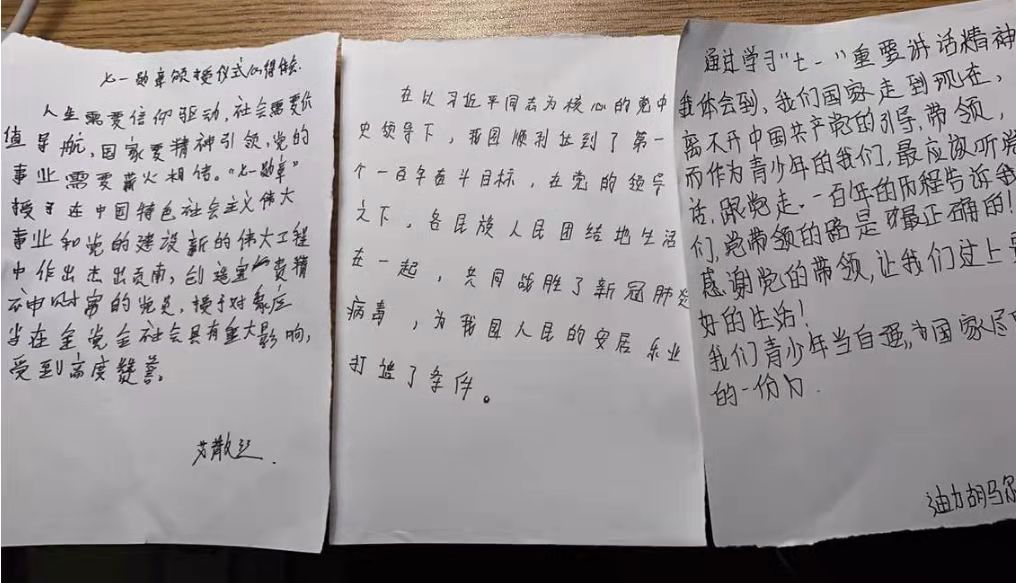 七一勋章颁授仪式心得体会
人生需要信仰驱动,社会需要价
值导航,国家要精神引领,党的
事业需要薪火相传。“七一勋章”
授予在中国特色社会主义伟大
事业和党的建设新的伟大工程
中作出杰出贡献,创造宝贵精
神财富的党员,授予对象应
当在全党全社会具有重大影响,
受到高度赞誉。
在以习近平同志为核心的党中
央领导下,我国顺利达到了第一
个一百年奋斗目标,在党的领导
之下,各民族人民团结地生活
在一起,共同战胜了新冠肺炎
病毒,为我国人民的安居乐业
打造了条件。
通过学习“七一”重要讲话精神
我体会到,我们国家走到现在,
离不开中国共产党的引导,带领,
而作为青少年的我们,最应该听党
话,跟党走。一百年的历程告诉我
们,党带领的路是最正确的!
感谢党的带领,让我们过上
好的生活!
我们青少年当自要,为国家尽
的一份力.
迪力胡马尔